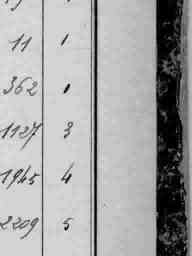 11 1
362 1
1127 3
1945 4
2209 5